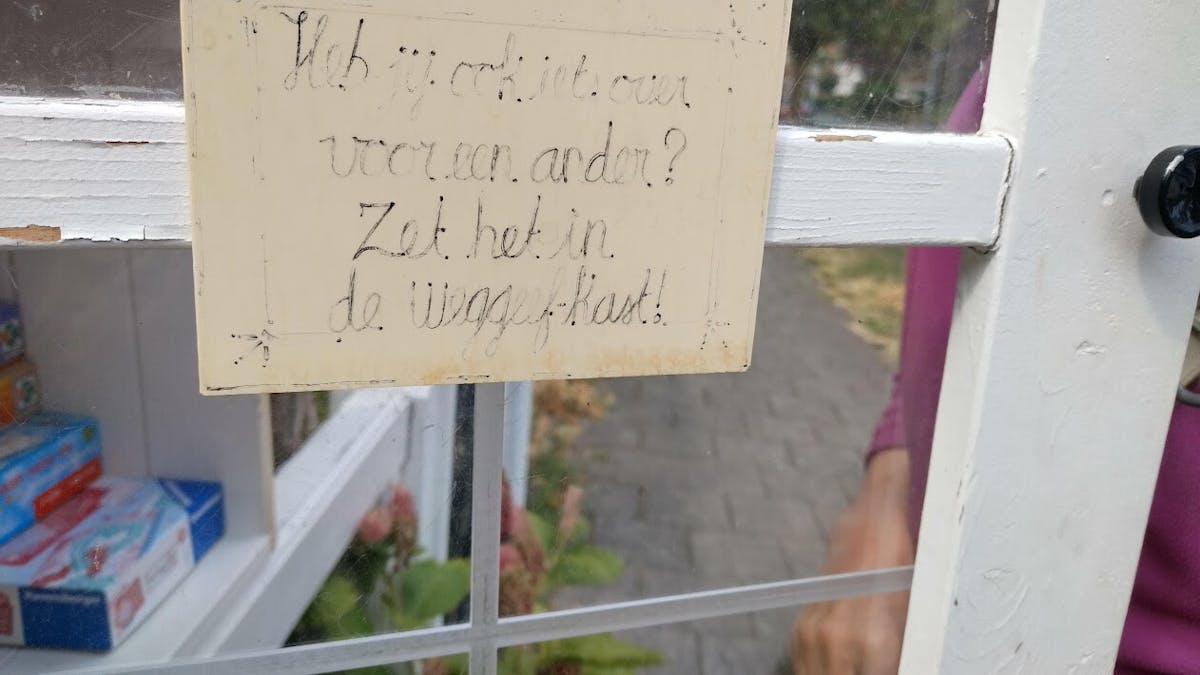 Heb jij ook iets over
voor een ander?
Zet het in
de weggeef-kast!
Ravensburger